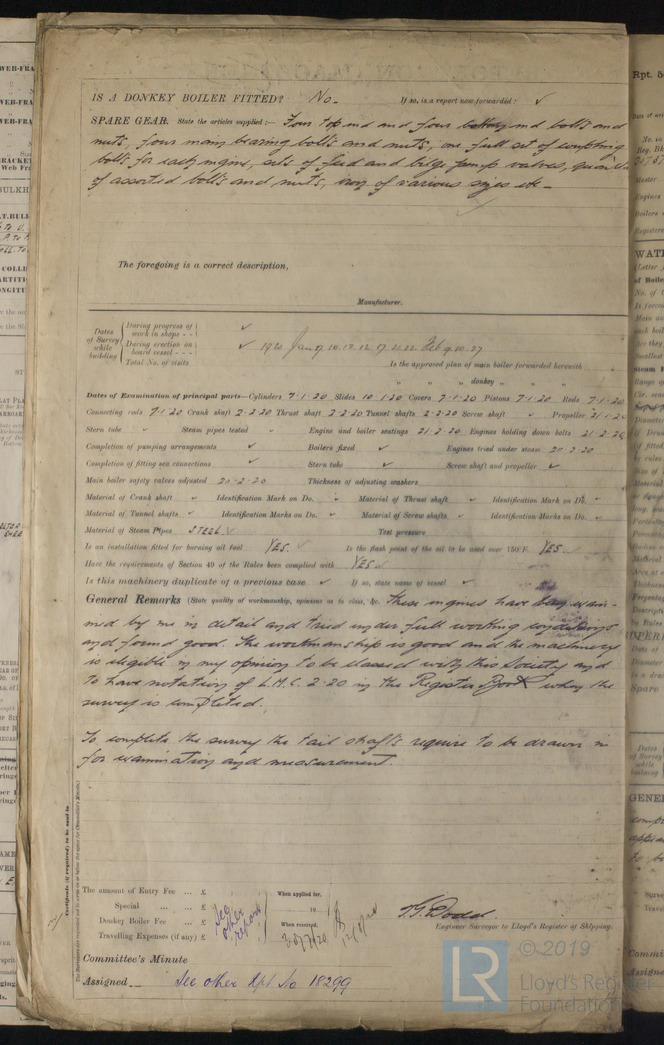 IS A DONKEY BOILER FITTED? No. If so, is a report now forwarded? ✓
SPARE GEAR. State the articles supplied:— Four top end and four bottom end bolts and
nuts, four main bearing bolts and nuts, one full set of coupling
bolts for each engine, sets of feed and bilge pump valves,
of assorted bolts and nuts, iron of various sizes etc —
The foregoing is a correct description,
Manufacturer.
Dates of Survey while building
During progress of work in shops - - ✓
During erection on board vessel - - - ✓ 1920 Jan 9. 10. 12. 17. 21. 22. Feb 9. 10. 27
Total No. of visits
Is the approved plan of main boiler forwarded herewith
" " " donkey " " "
Dates of Examination of principal parts—Cylinders 7-1-20 Slides 10-1-20 Covers 7-1-20 Pistons 7-1-20 Rods 7-1-20
Connecting rods 7-1-20 Crank shaft 2-2-20 Thrust shaft 2-2-20 Tunnel shafts 2-2-20 Screw shaft ✓ Propeller 21-1-20
Stern tube ✓ Steam pipes tested ✓ Engine and boiler seatings 21-2-20 Engines holding down bolts 21-2-20
Completion of pumping arrangements ✓ Boilers fixed ✓ Engines tried under steam 27-2-20
Completion of fitting sea connections ✓ Stern tube ✓ Screw shaft and propeller ✓
Main boiler safety valves adjusted 20-2-20 Thickness of adjusting washers
Material of Crank shaft ✓ Identification Mark on Do. ✓ Material of Thrust shaft ✓ Identification Mark on Do. ✓
Material of Tunnel shafts ✓ Identification Marks on Do. ✓ Material of Screw shafts ✓ Identification Marks on Do. ✓
Material of Steam Pipes STEEL ✓ Test pressure
Is an installation fitted for burning oil fuel YES. ✓ Is the flash point of the oil to be used over 150°F. YES. ✓
Have the requirements of Section 49 of the Rules been complied with YES ✓
Is this machinery duplicate of a previous case ✓ If so, state name of vessel ✓
General Remarks (State quality of workmanship, opinions as to class, &c. These engines have been exam-
ined by me in detail and tried under full working conditions
and found good. The workmanship is good and the machinery
is eligible in my opinion to be classed with this Society and
to have notation of L.M.C. 2-20 in the Register Book when the
survey is completed.
To complete the survey the tail shafts require to be drawn in
for examination and measurement.
Certificate (if required) to be sent to
The amount of Entry Fee ... £
Special ... £
Donkey Boiler Fee ... £
Travelling Expenses (if any) £
See other report
When applied for,
When received,
T. G. Dodd.
Engineer Surveyor to Lloyd's Register of Shipping.
Committee's Minute
Assigned See other Rpt. No 18299
LR
© 2019
Lloyd's Register
Foundation